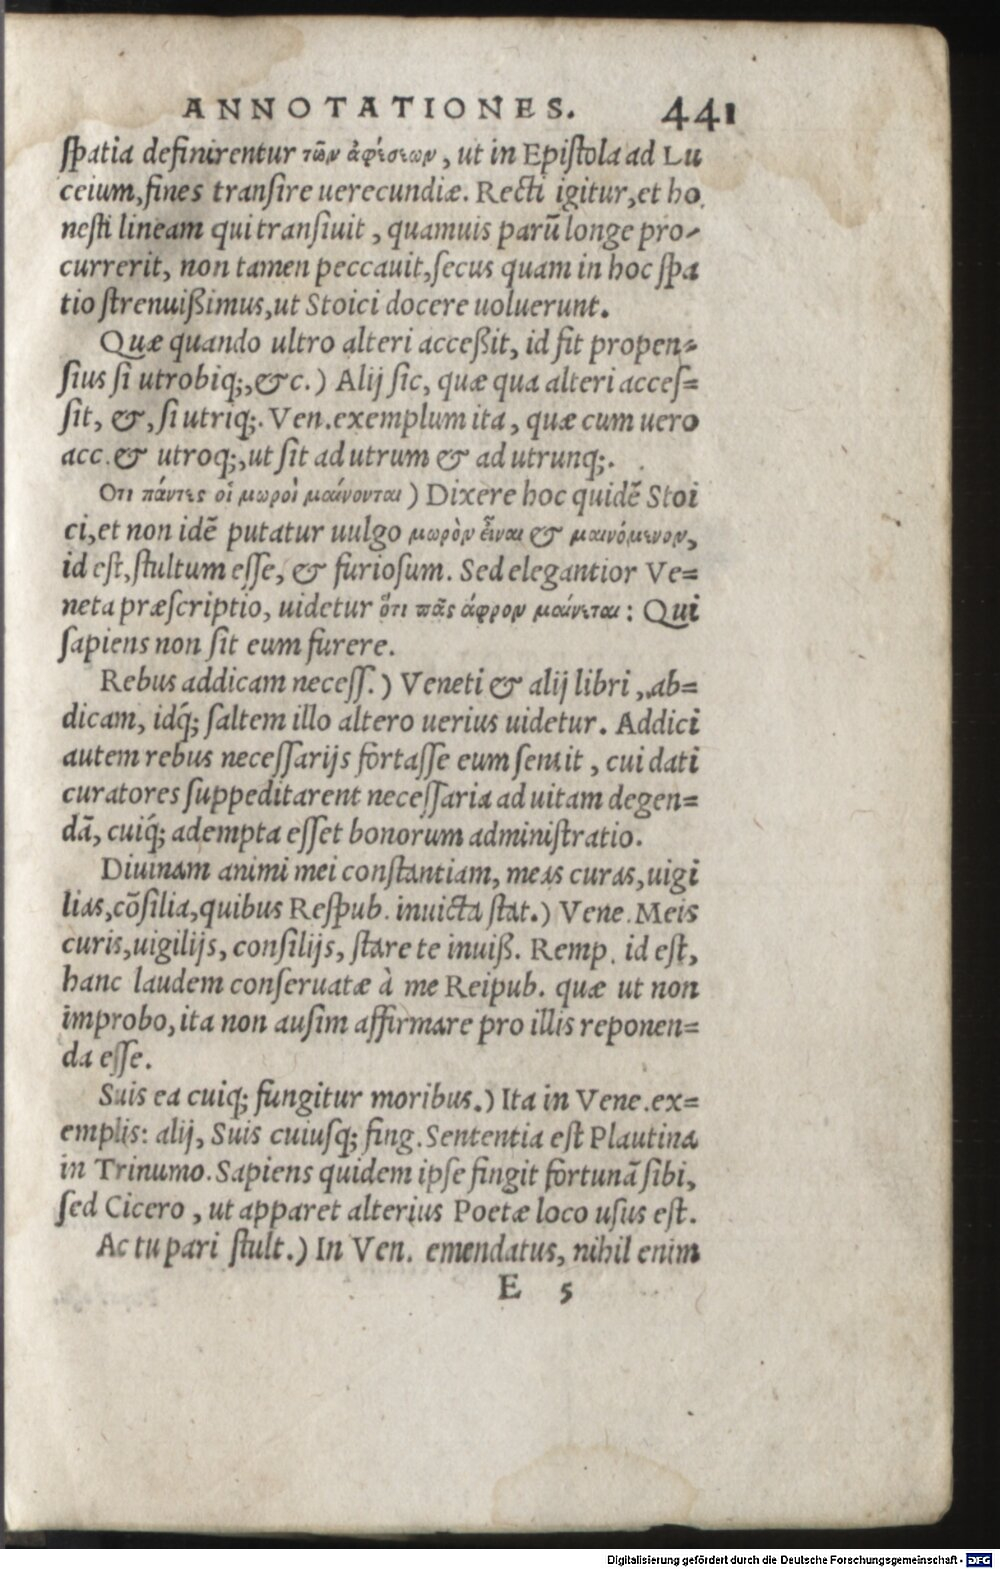 ANNOTATIONES. 441
ſpatia definirentur τῶν ἀφέσεων, ut in Epiſtola ad Lu
ceium, fines tranſire uerecundiæ. Recti igitur, et ho
neſti lineam qui tranſiuit, quamuis parũ longe pro-
currerit, non tamen peccauit, ſecus quam in hoc ſpa
tio ſtrenuißimus, ut Stoici docere uoluerunt.
Quæ quando ultro alteri acceßit, id fit propen=
ſius ſi utrobiq;, &c.) Alij ſic, quæ qua alteri acceſ=
ſit, &, ſi utriq;. Ven. exemplum ita, quæ cum uero
acc. & utroq;, ut ſit ad utrum & ad utrunq;.
Οτι πάντες οἱ μωροὶ μαίνονται) Dixere hoc quidẽ Stoi
ci, et non idẽ putatur uulgo μωρὸν εἶναι & μαινόμενον,
id eſt, ſtultum eſſe, & furioſum. Sed elegantior Ve=
neta præſcriptio, uidetur ὅτι πᾶς ἄφρον μαίνεται: Qui
ſapiens non ſit eum furere.
Rebus addicam neceſſ.) Veneti & alij libri, ab=
dicam, idq́; ſaltem illo altero uerius uidetur. Addici
autem rebus neceſſarijs fortaſſe eum ſentit, cui dati
curatores ſuppeditarent neceſſaria ad uitam degen=
dã, cuiq́; adempta eſſet bonorum adminiſtratio.
Diuinam animi mei conſtantiam, meas curas, uigi
lias, cõſilia, quibus Reſpub. inuicta ſtat.) Vene. Meis
curis, uigilijs, conſilijs, ſtare te inuiß. Remp. id eſt,
hanc laudem conſeruatæ à me Reipub. quæ ut non
improbo, ita non auſim affirmare pro illis reponen=
da eſſe.
Suis ea cuiq; fungitur moribus.) Ita in Vene. ex=
emplis: alij, Suis cuiuſq; fing. Sententia eſt Plautina
in Trinumo. Sapiens quidem ipſe fingit fortunã ſibi,
ſed Cicero, ut apparet alterius Poetæ loco uſus eſt.
Ac tu pari ſtult.) In Ven. emendatus, nihil enim
E 5
Digitalisierung gefördert durch die Deutsche Forschungsgemeinschaft - DFG